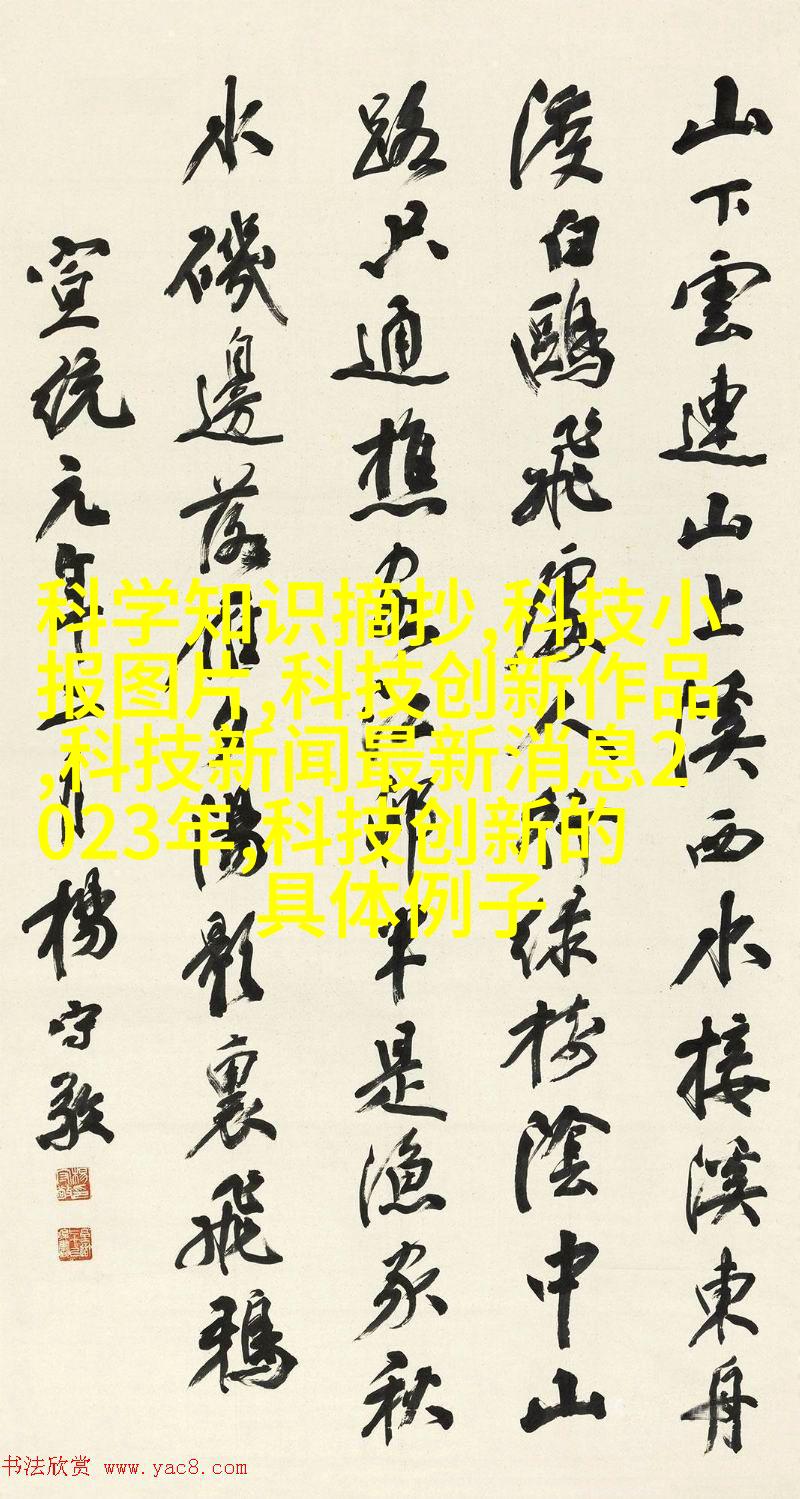 山下雲連山上溪西水接溪東舟
渡白鷗飛處人行綠樹陰中山
路只通樵客江村半是漁家秋
水磯邊落雁夕陽影裏飛鴉
宣統元年月楊守敬
科学知识摘抄,科技小
报图片,科技创新作品
,科技新闻最新消息2
023年,科技创新的
具体例子
书法欣赏 www.yac8.com